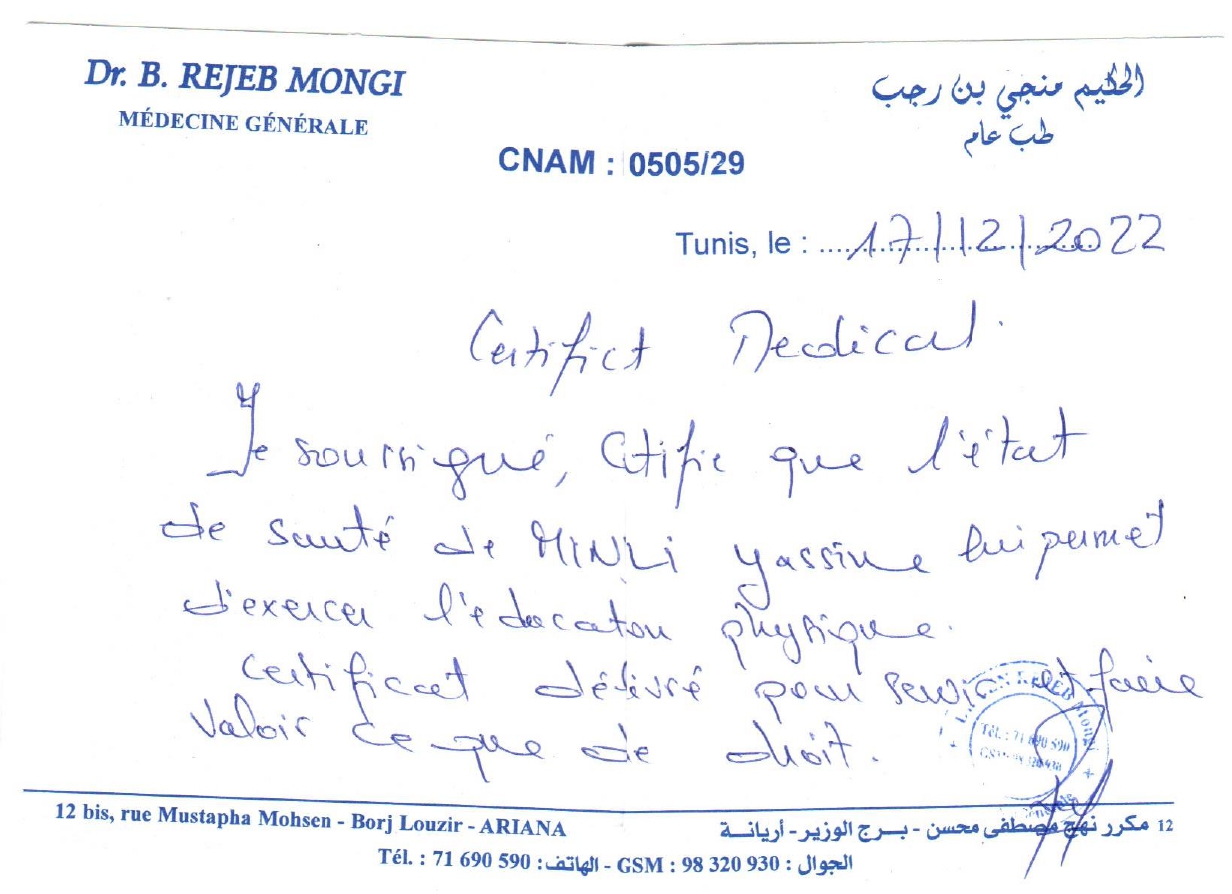 Dr. B. REJEB MONGI
MÉDECINE GÉNÉRALE
الحكيم منجي بن رجب
طب عام
CNAM : 0505/29
Tunis, le : 17/12/2022
Certifict Medical.
Je soussigné, Certifie que l'état
de santé de MINLI Yassine lui permet
d'exercer l'éducaton physique.
Certificat délivré pour servir et faire
Valoir ce que de droit.
REJEB MONGI
Tél. : 71 690 590
GSM : 98 320 930
12 bis, rue Mustapha Mohsen - Borj Louzir - ARIANA
12 مكرر نهج مصطفى محسن - بـرج الوزير - أريانـة
Tél. : 71 690 590 : الهاتف - GSM : 98 320 930 : الجوال